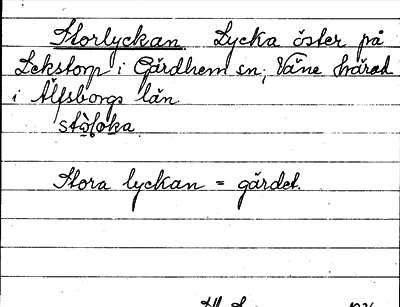 Storlyckan Lycka öster på
Lekstorp i Gärdhem sn, Väne härad
i Älfsborgs län
Stora lyckan = gärdet.